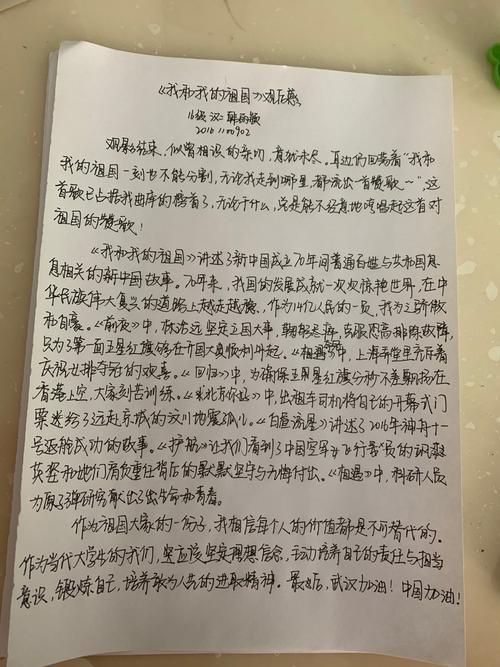 《我和我的祖国》观后感
16级 汉二
20161100902
观影结束，似曾相识的亲切，意犹未尽。耳边仍回荡着“我和
我的祖国一刻也不能分割，无论我走到哪里，都流出一首赞歌~”，这
首歌已占据我曲库的榜首了，无论干什么，总是能不经意地哼唱起这首对
祖国的赞歌！
《我和我的祖国》讲述了新中国成立70年间普通百姓与共和国息
息相关的新中国故事。70年来，我国的发展成就一次次惊艳世界，在中
华民族伟大复兴的道路上越走越稳，作为14亿人民的一员，我为之骄傲
和自豪。《前夜》中，林治远坚守立国大事，克服困高排除故障，
只为了第一面五星红旗够在开国大典顺利升起。《相遇》中，上海弄堂里充斥着
庆祝女排夺冠的欢喜。《回归》中，为确保五星红旗分秒不差飘扬在
香港上空，大家刻苦训练。《北京你好》中，出租车司机将自己的开幕式门
票送给了远赴京城的汶川地震孤儿。《白昼流星》讲述了2016年神舟十一
号返航成功的故事。《护航》让我们看到了中国空军女飞行员的飒爽
英姿和她们肩负重任背后的默默坚守与无悔付出。《相遇》中，科研人员
为原子弹研究献出了生命和青春。
作为祖国大家的一份子，我相信每个人的价值都是不可替代的。
作为当代大学生的我们，更应该坚定理想信念，主动培养自己的责任与担当
意识，锻炼自己，培养敢为人先的进取精神。最后，武汉加油！中国加油！